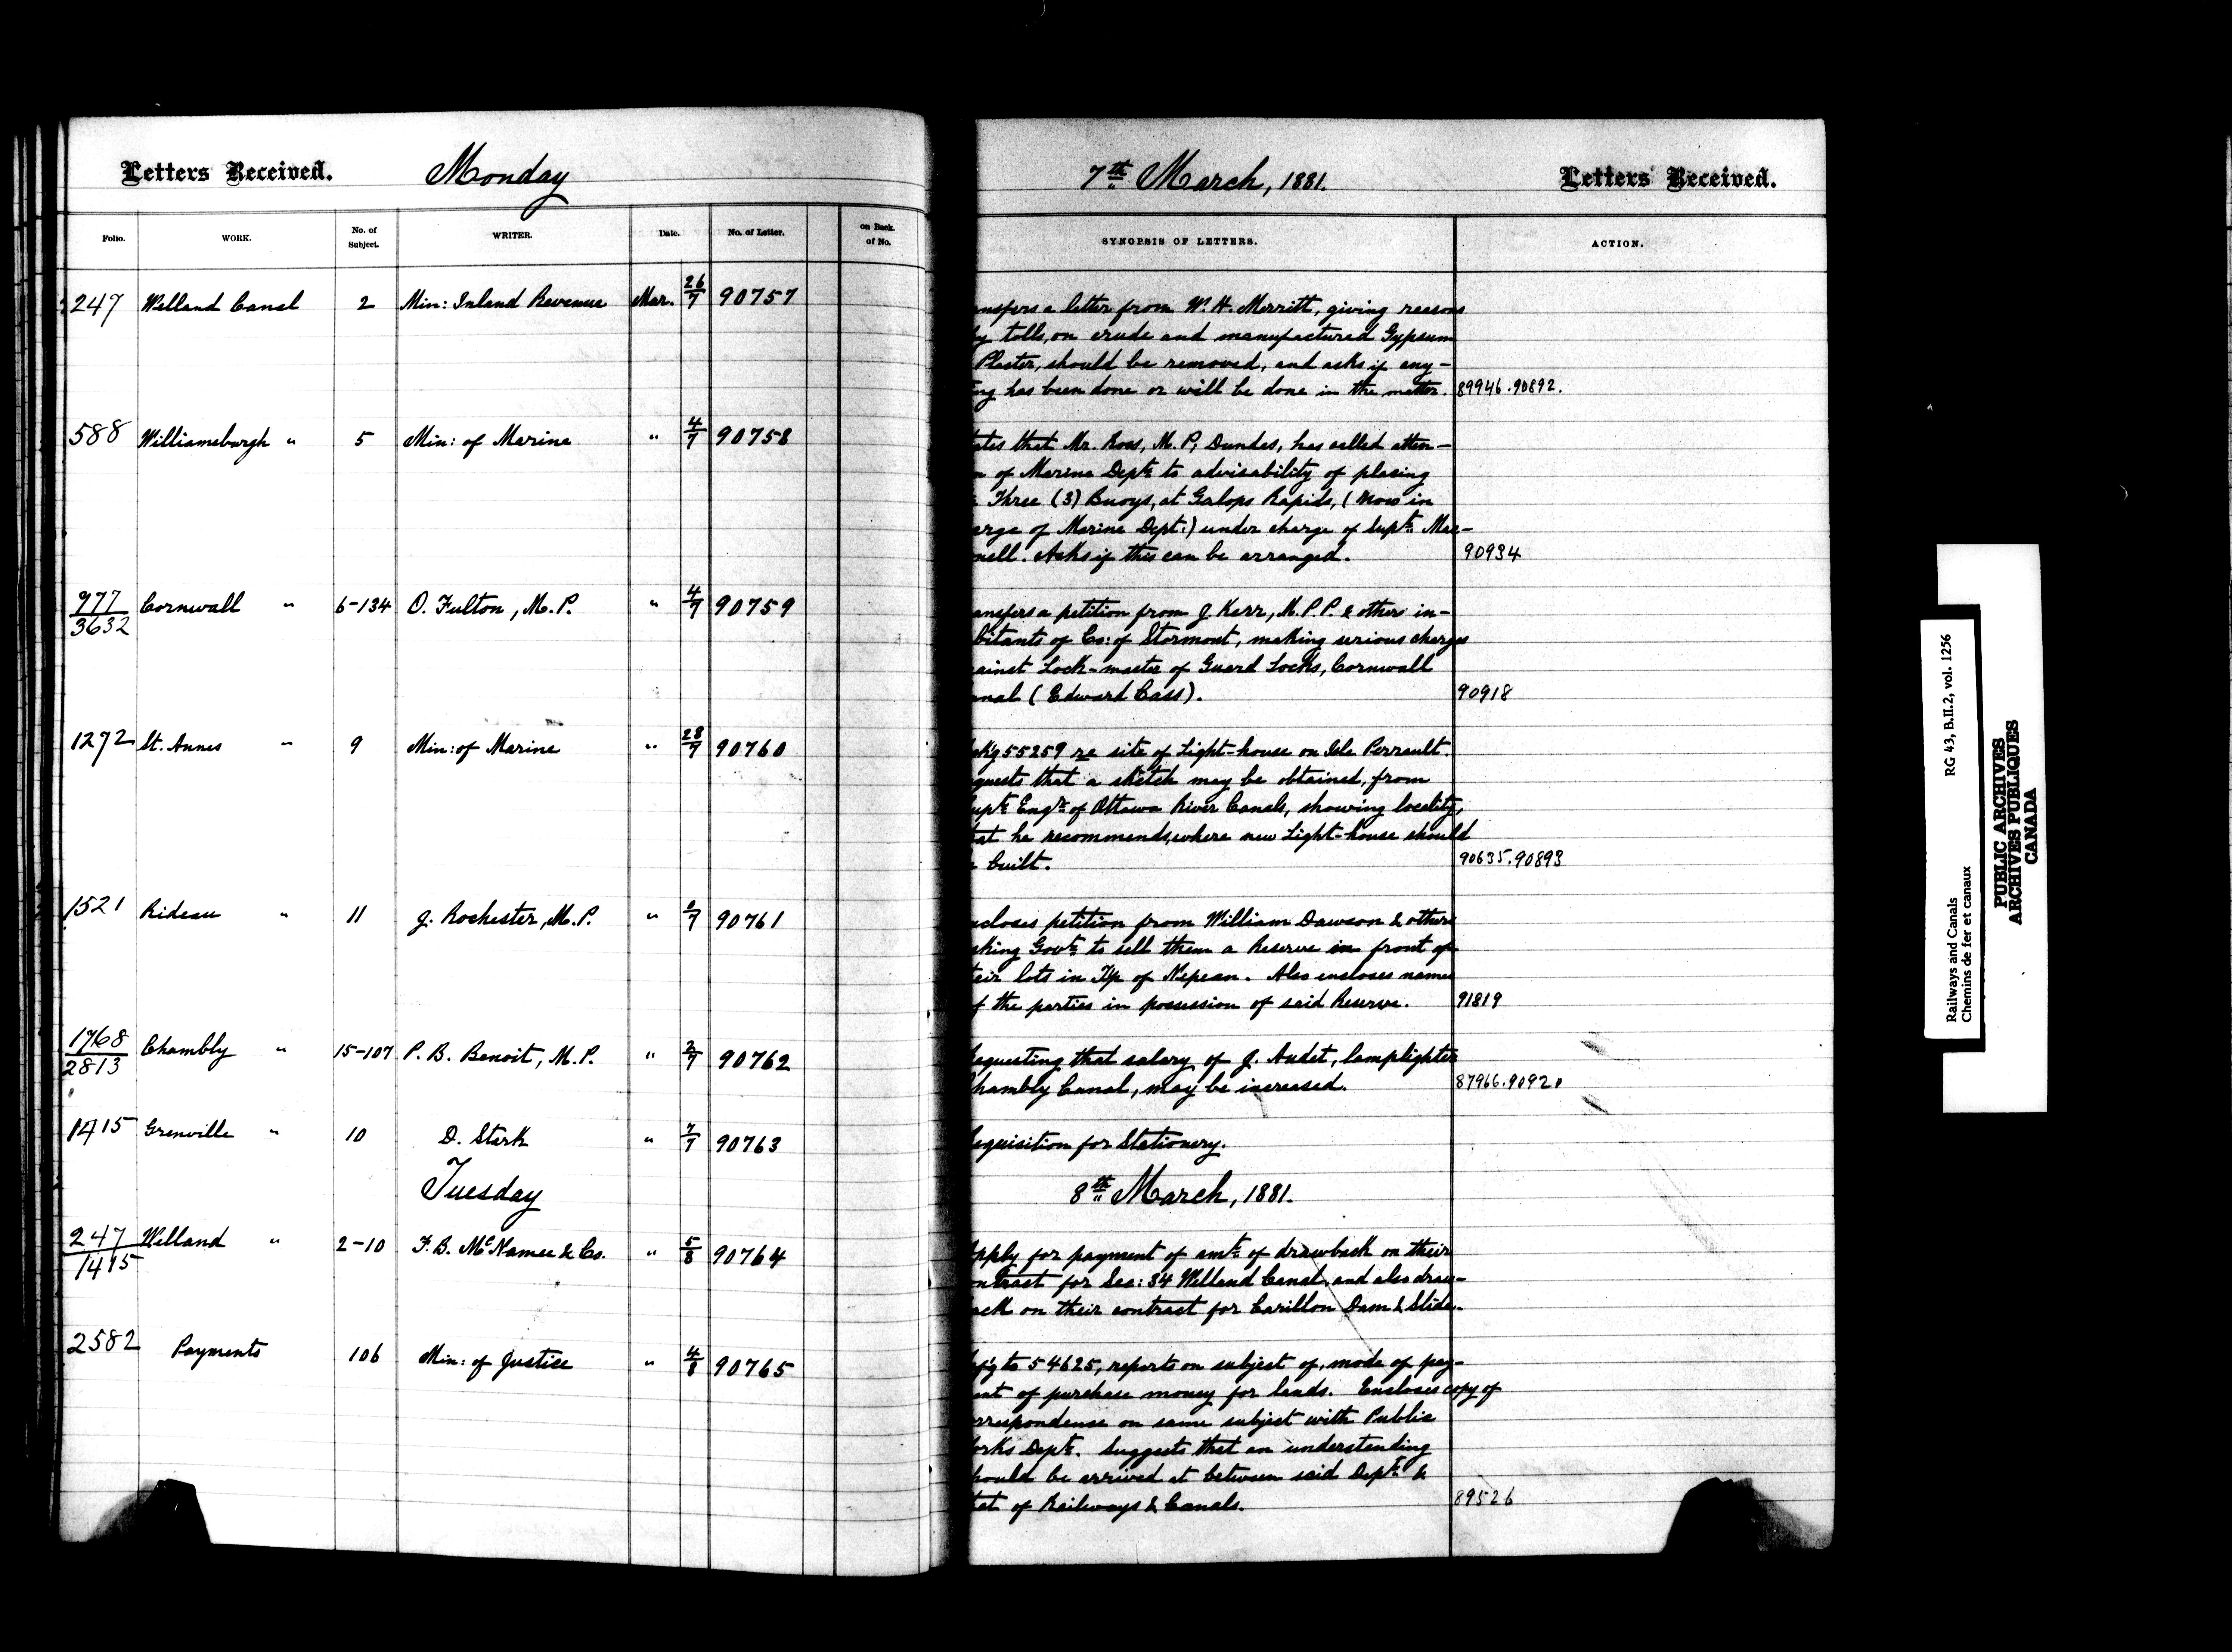 Letters Received. Monday
7th March, 1881. Letters Received.
Folio. WORK. No. of Subject. WRITER. Date. No. of Letter. on Back. of No.
SYNOPSIS OF LETTERS. ACTION.
247 Welland Canal 2 Min: Inland Revenue Mar. 26/7 90757
ansfers a letter from W. H. Merritt, giving reasons
hy tolls, on crude and manufactured Gypsum
Plaster, should be removed, and asks if any-
ing has been done or will be done in the matter. 89946.90892.
588 Williamsburgh " 5 Min: of Marine " 4/7 90758
ates that Mr. Ross, M.P, Dundas, has called atten-
n of Marine Dept: to advisability of placing
Three (3) Buoys, at Galops Rapids, (now in
arge of Marine Dept:) under charge of Supt: Mac-
nell. Asks if this can be arranged. 90934
977/3632 Cornwall " 6-134 O. Fulton, M.P. " 4/7 90759
ansfers a petition from J Kerr, M.P.P. & others in-
bitants of Co: of Stormont, making serious charges
ainst Lock-master of Guard Locks, Cornwall
anal (Edward Cass). 90918
1272 St. Annes " 9 Min: of Marine " 28/7 90760
ak'g 55259 re site of Light-house on Isle Perrault.
quests that a sketch may be obtained, from
upt: Engr: of Ottawa River Canals, showing locality,
at he recommends, where new Light-house should
built. 90635.90893
1521 Rideau " 11 J. Rochester, M.P. " /7 90761
closes petition from William Dawson & others
sking Govt: to sell them a Reserve in front of
eir lots in Tp of Nepean. Also encloses names
f the parties in possession of said Reserve. 91819
1768/2813 Chambly " 15-107 P. B. Benoit, M.P. " 2/7 90762
equesting that salary of J. Audet, lamplighter
hambly Canal, may be increased. 87966.90920
1415 Grenville " 10 D. Stark " 7/7 90763
equisition for Stationery.
Tuesday
8th March, 1881.
247/1415 Welland " 2-10 F. B. McNamee & Co. " 5/8 90764
pply for payment of amt: of drawback on their
ontract for Sec: 34 Welland Canal, and also draw-
ack on their contract for Carillon Dam & Slide.
2582 Payments 106 Min: of Justice " 4/8 90765
ef'g to 54625, reports on subject of, mode of pay-
ent of purchase money for lands. Encloses copy of
orrespondence on same subject with Public
orks Dept:. Suggests that an understanding
hould be arrived at between said Dept: &
hat of Railways & Canals. 89526
Railways and Canals RG 43, B.II.2, vol. 1256
Chemins de fer et canaux
PUBLIC ARCHIVES
ARCHIVES PUBLIQUES
CANADA